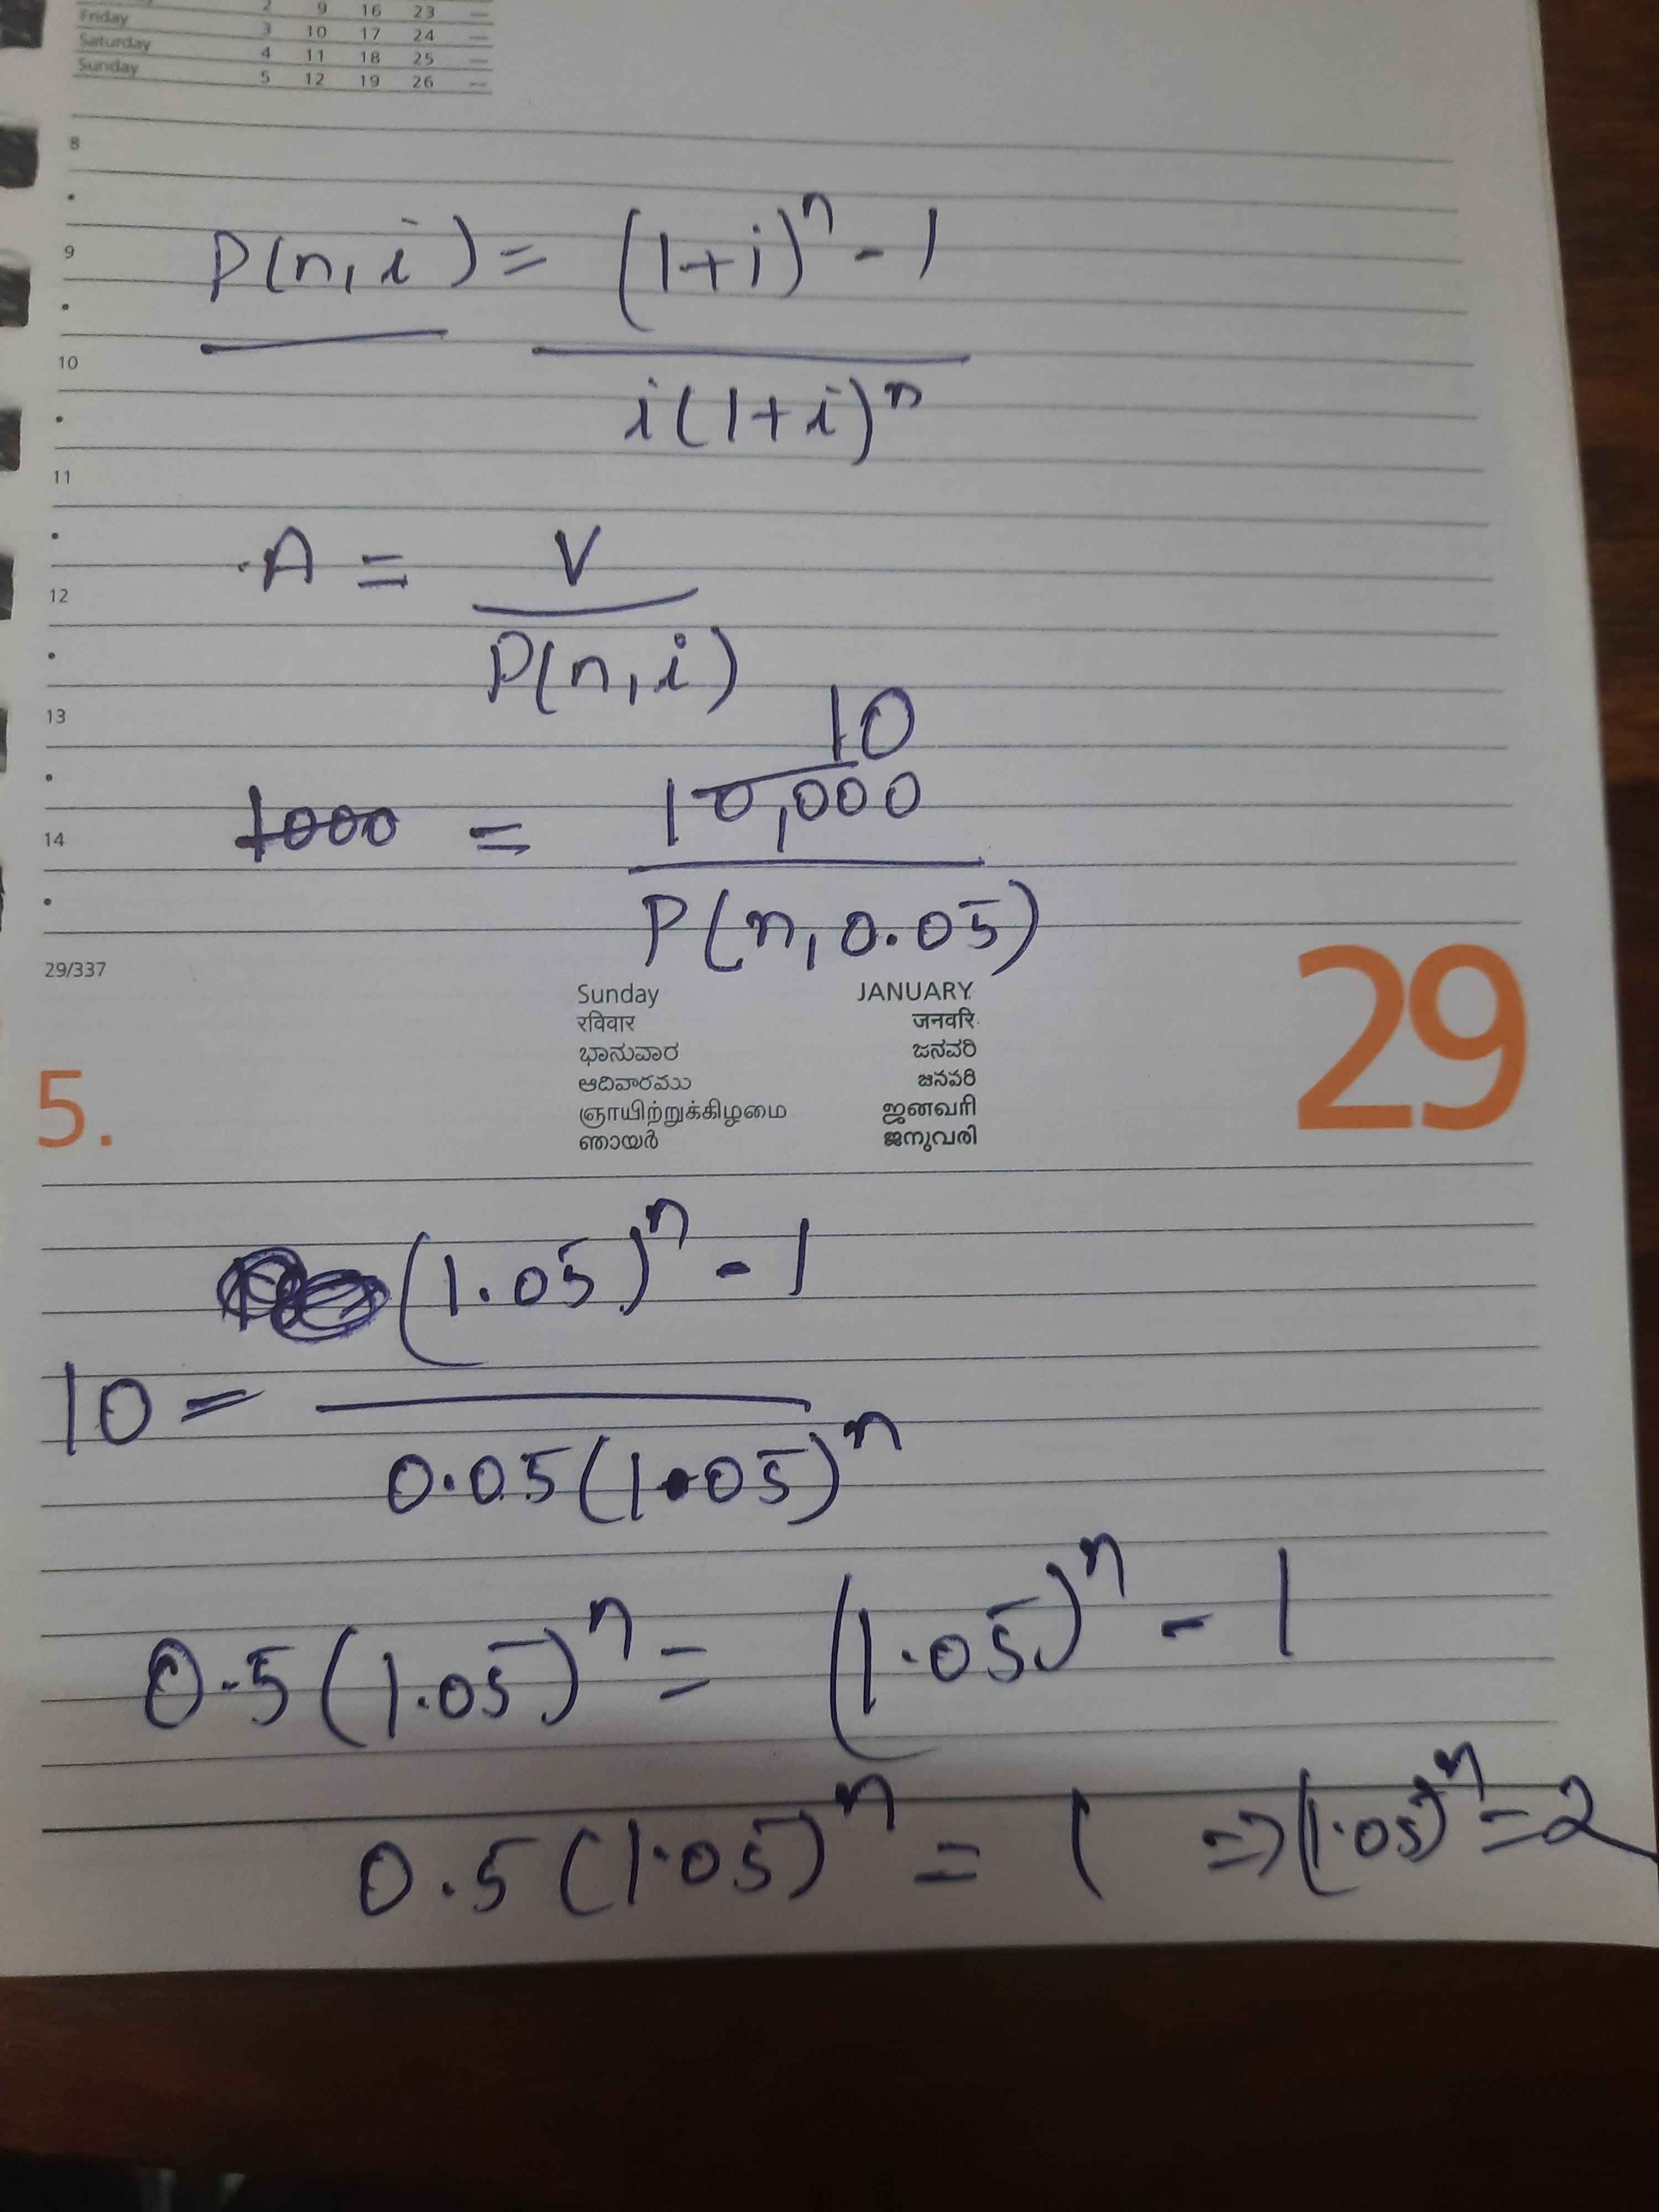 2 9 16 23 —
Friday 3 10 17 24 —
Saturday 4 11 18 25 —
Sunday 5 12 19 26 —
8
9
P(n,i) = (1+i)^n - 1
10
i(1+i)^n
11
A = V
12
P(n,i)
13
10
1000 = 10,000
14
P(n,0.05)
29/337
Sunday JANUARY
रविवार जनवरि
ಭಾನುವಾರ ಜನವರಿ
ఆదివారము జనవరి
ஞாயிற்றுக்கிழமை ஜனவரி
ഞായർ ജനുവരി
29
5.
(1.05)^n - 1
10 =
0.05(1.05)^n
0.5(1.05)^n = (1.05)^n - 1
0.5(1.05)^n = 1 ⇒ (1.05)^n = 2